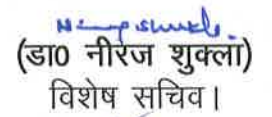 (डा0 नीरज शुक्ला)
विशेष सचिव।